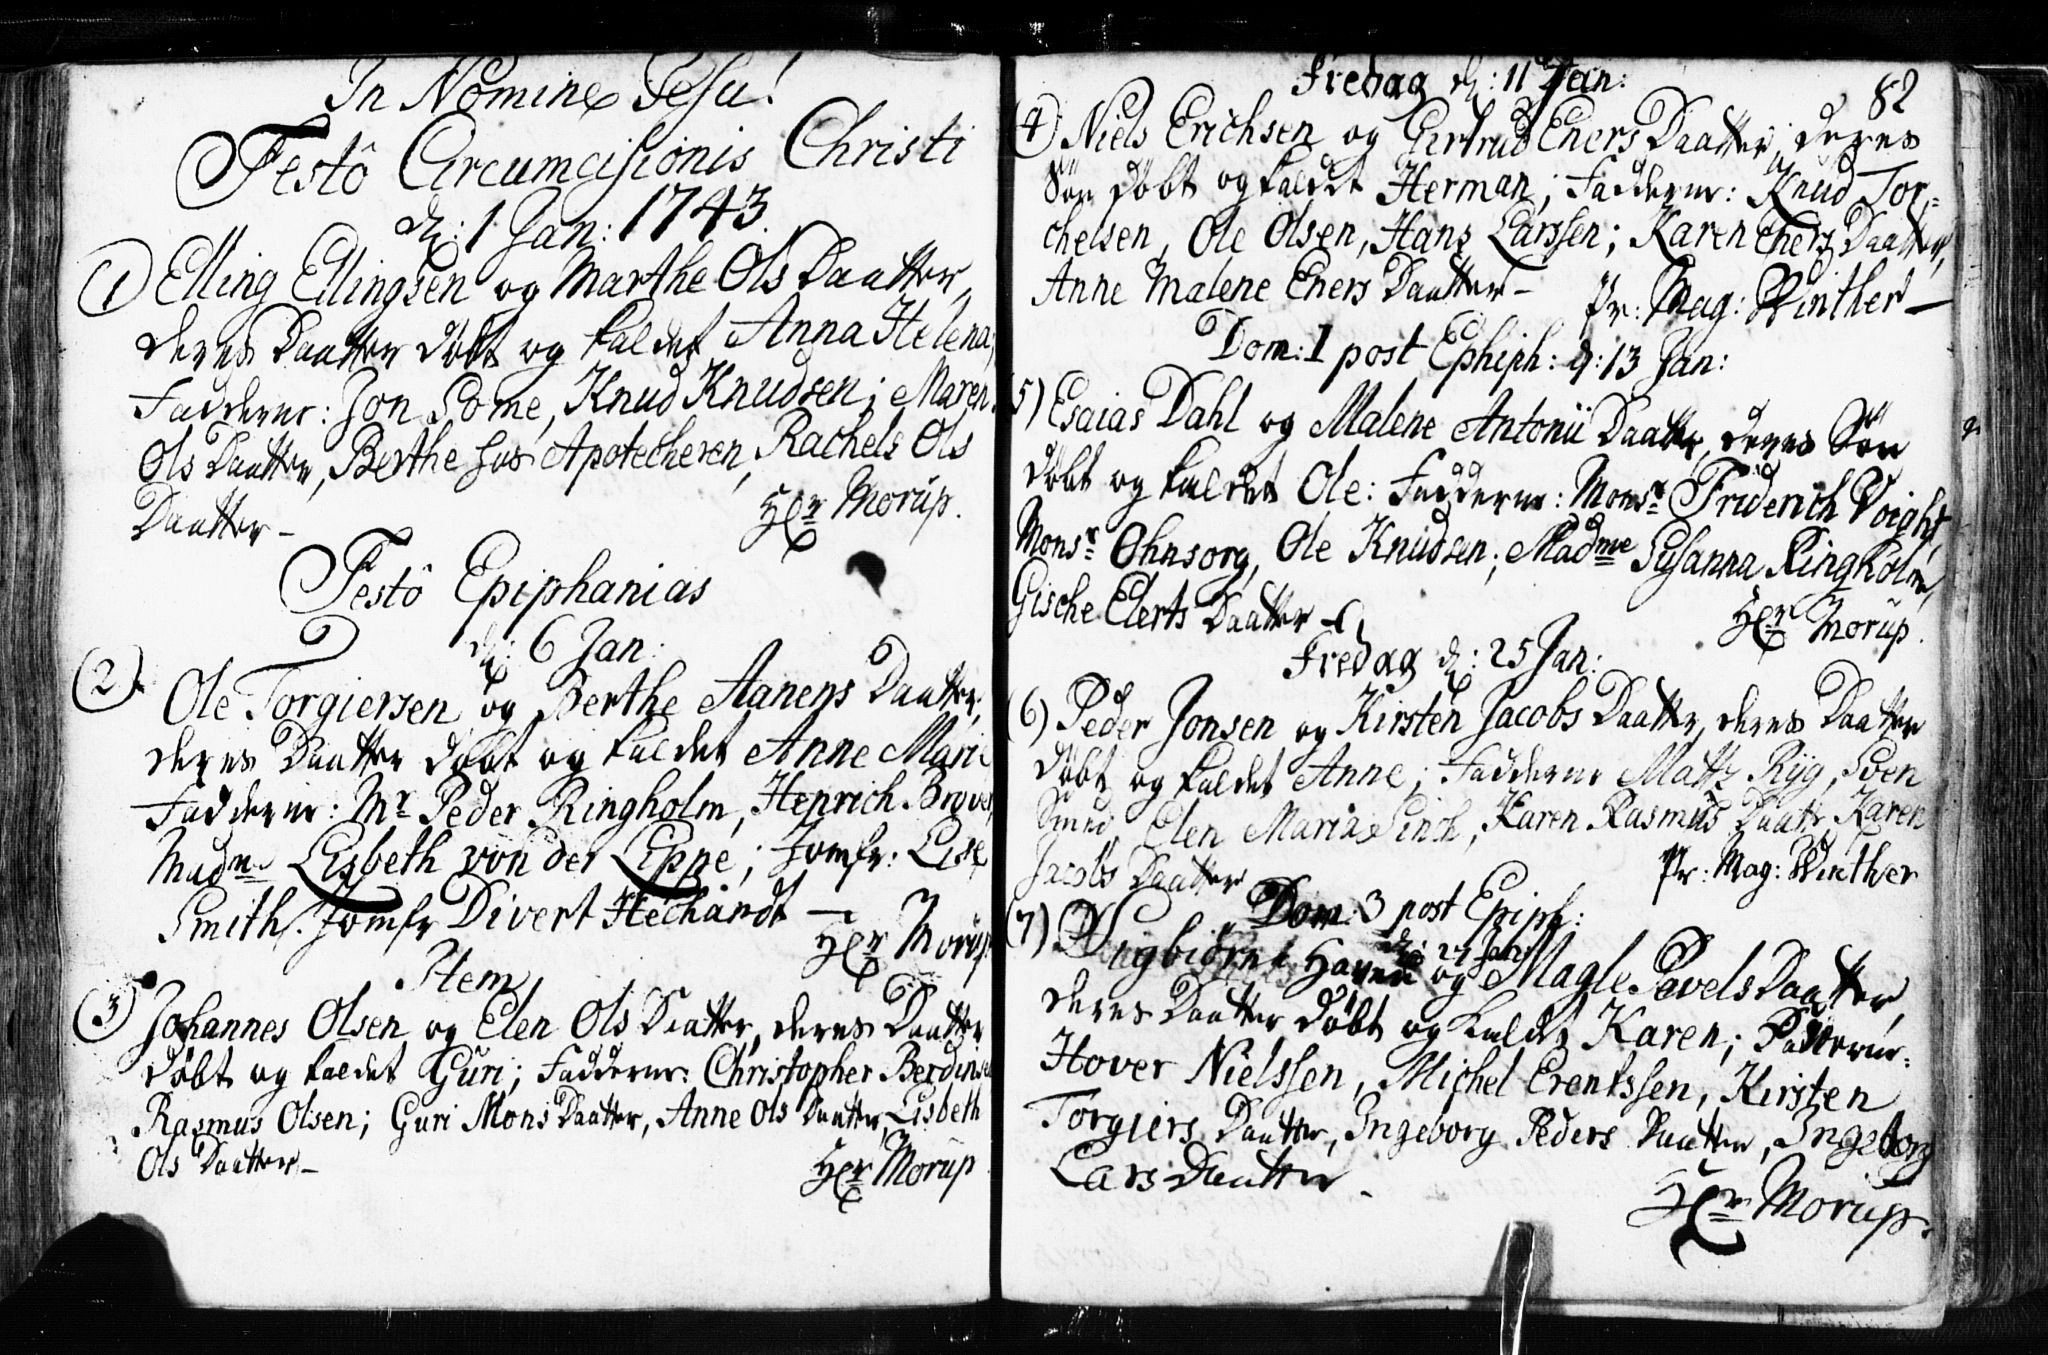 In Nomine Jesu!
Festô Circumcisionis Christi
d: 1 Jan: 1743.
1) Elling Ellingsen og Marthe Ols Daatter,
deres Daatter döbt og kaldet Anna Helena;
Fadderne: Jon Some, Knud Knudsen; Maren
Ols Daatter, Berthe hos Apotecheren, Rachels Ols
Daatter – Hr Morup.
Festô Epiphanias
d: 6 Jan:
2) Ole Torgiersen og Berthe Aanens Daatter,
deres Daatter döbt og kaldet Anne Marie
Fadderne: Mr Peder Ringholm, Henrich Brover
Madme Lisbeth von der Lippe; Jomfr: Lise
Smith. Jomfr Divert Hechandt – Hr Morup
Item
3) Johannes Olsen og Elen Ols Daatter, deres Daatter
döbt og kaldet Guri; Fadderne: Christopher Berdinse
Rasmus Olsen; Guri Mons Daatter, Anne Ols Daatter, Lisbeth
Ols Daatter – Hr Morup
82
Fredag d: 11 Jan:
4) Niels Erichsen og Girtrud Eners Daatter, deres
Sön döbt og kaldet Herman; Fadderne: Knud Tor-
chelsen, Ole Olsen, Hans Larssen; Karen Eners Daatter,
Anne Malene Eners Daatter – Pr: Mag: Winther –
Dom: 1 post Ephiph: d: 13 Jan:
5) Esaias Dahl og Malene Antonii Daatter, deres Sön
döbt og kaldet Ole: Fadderne: Monsr Friderich Voight,
Monsr Ohnsorg, Ole Knudsen; Madme Susanna Ringholm,
Gische Elerts Daatter – Hr Morup.
Fredag d: 25 Jan:
6) Peder Jonsen og Kirsten Jacobs Daatter, deres Daatter
döbt og kaldet Anne; Fadderne Matts Ryg, Sven
Smed, Elen Maria Finch, Karen Rasmus Daatr Karen
Jacobs Daatter Pr: Mag: Winther
Dom: 3 post Epiph:
d: 27 Jan:
7) Sigbiörn Haven og Magle Povels Daatter,
deres Daatter döbt og kaldet Karen; Fadderne:
Hover Nielssen, Michel Erentssen, Kirsten
Torgiers Daatter, Ingeborg Peders Daatter, Ingeborg
Lars Daatter – Hr Morup.